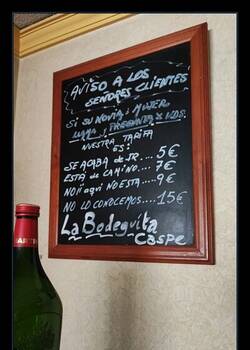 AVISO A LOS
SEÑORES CLIENTES
SI SU NOVIA / MUJER
LLAMA / PREGUNTA X VDS.
NUESTRA TARIFA
ES:
SE ACABA de IR.... 5€
ESTÁ de CAMINO.... 7€
NO aquí NO ESTA.... 9€
NO LO CONOCEMOS.... 15€
La Bodeguita
Caspe
MARTINI